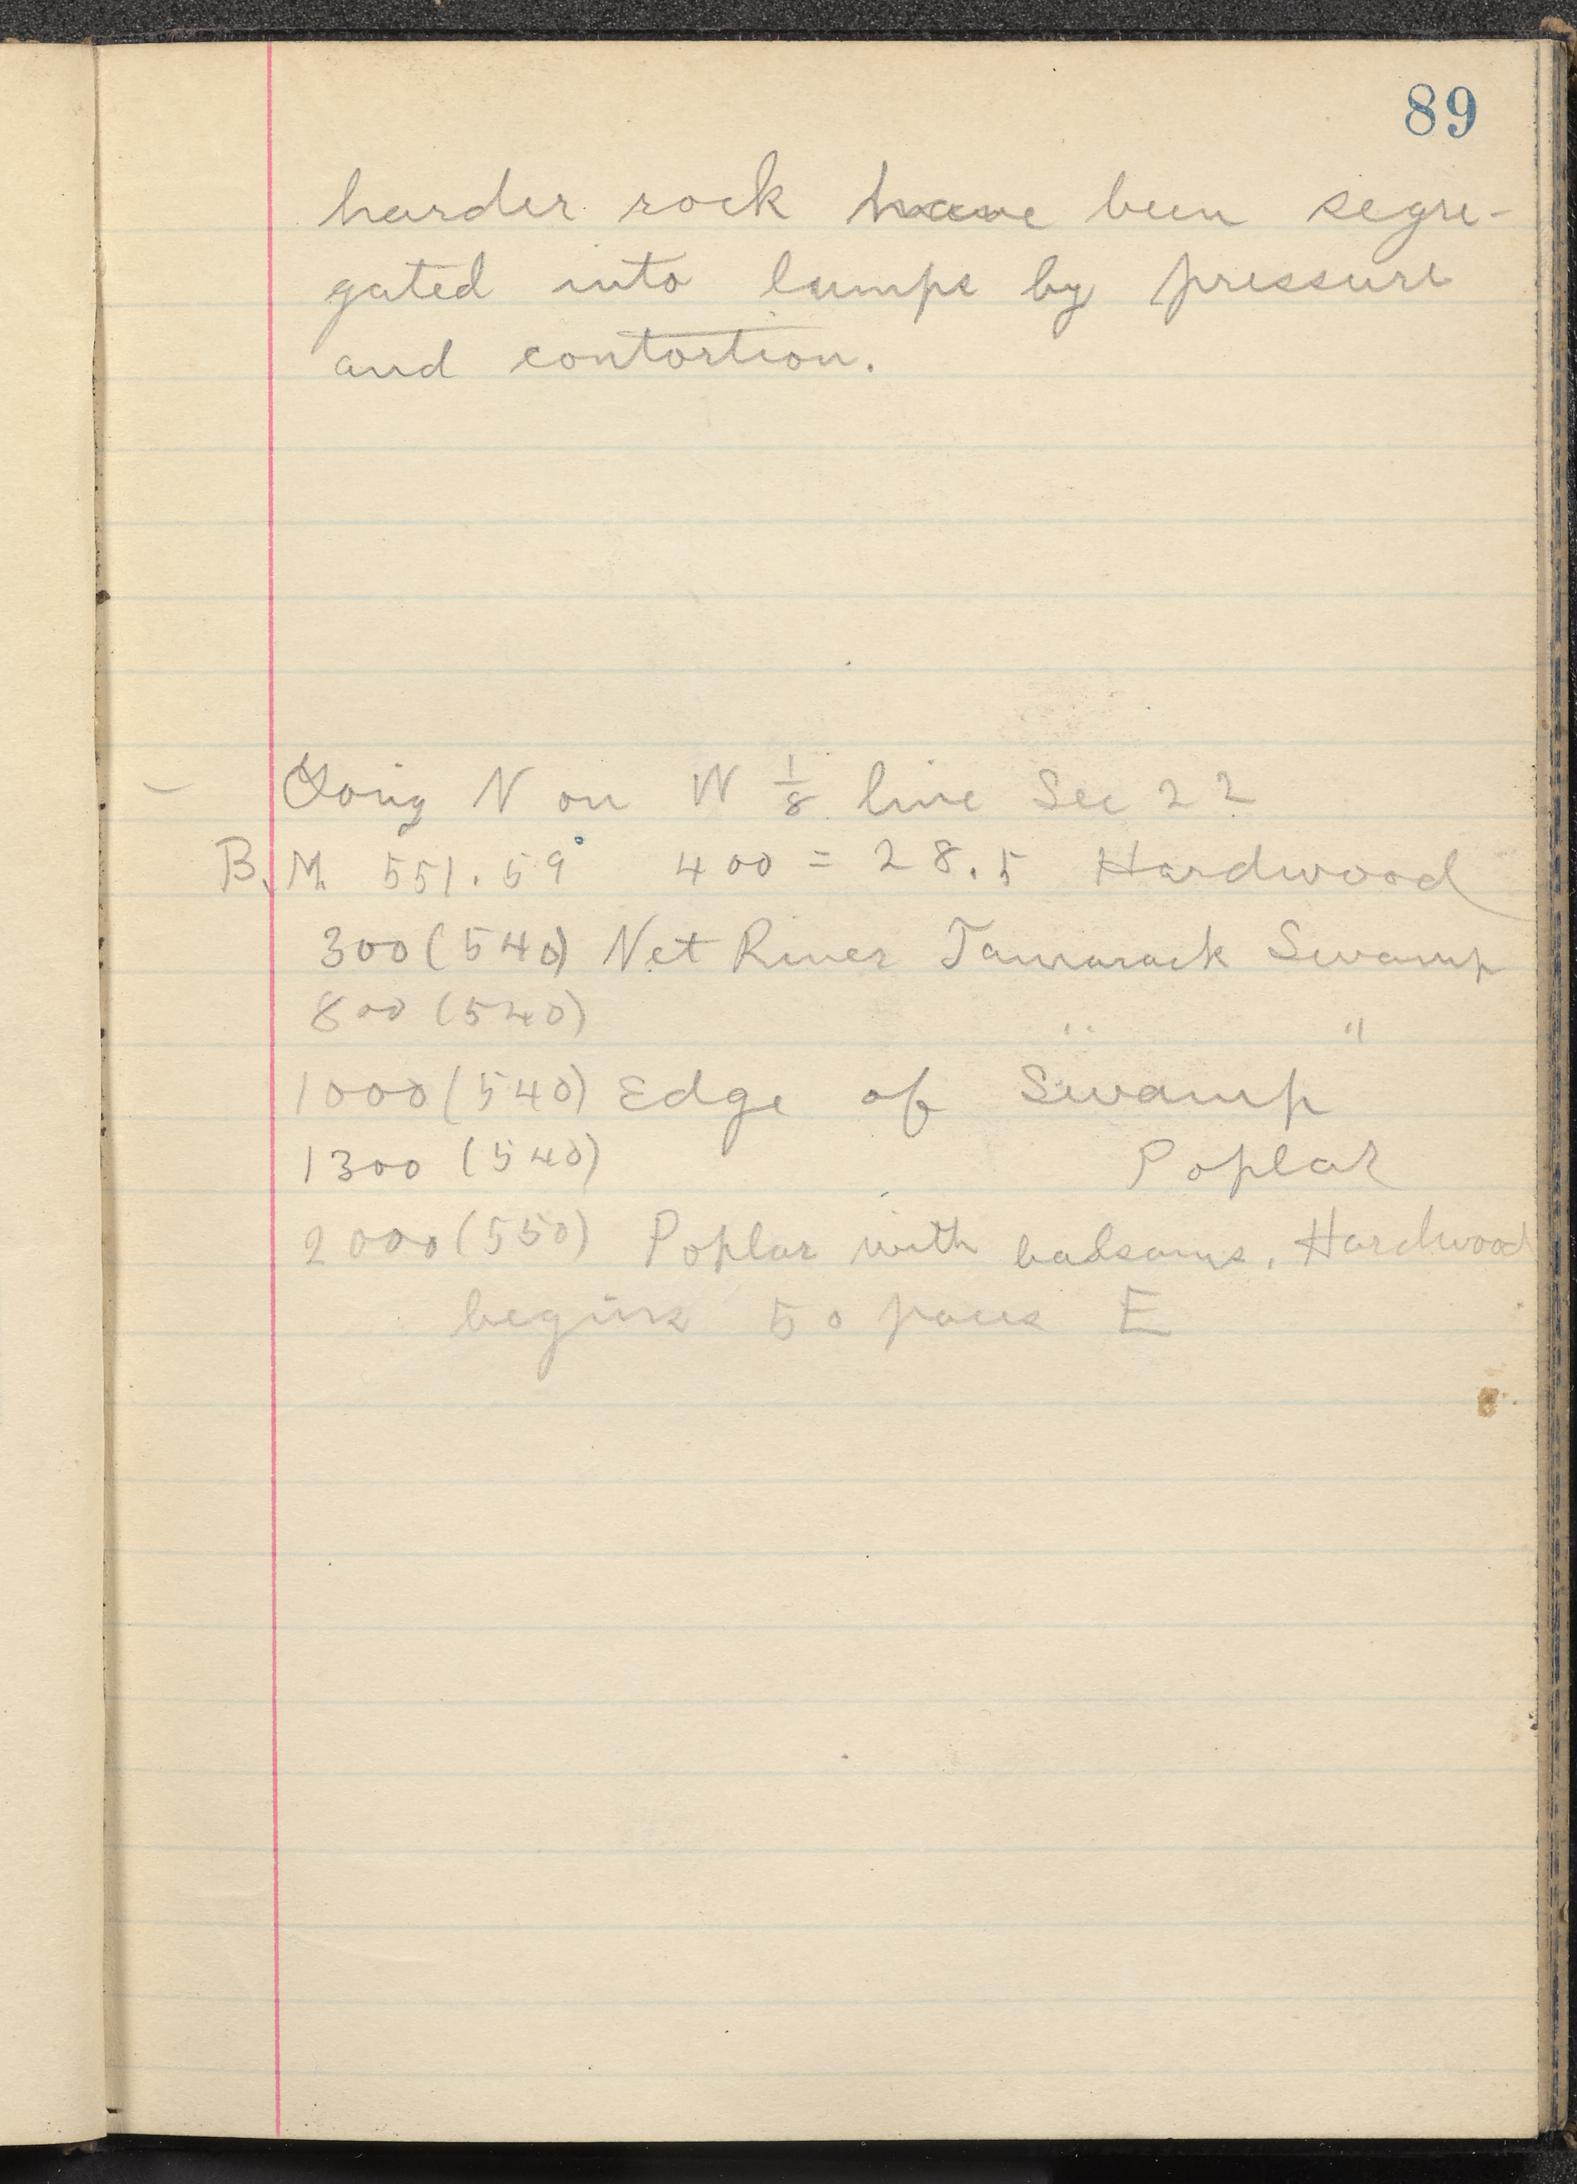 89
harder rock have been segre-
gated into lumps by pressure
and contortion.
Going N on W 1/8 line Sec 22
B.M. 551.59 400 = 28.5 Hardwood
300 (540) Net River Tamarack Swamp
800 (540) " "
1000 (540) Edge of Swamp
1300 (540) Poplar
2000 (550) Poplar with balsams, Hardwood
begins 50 paces E